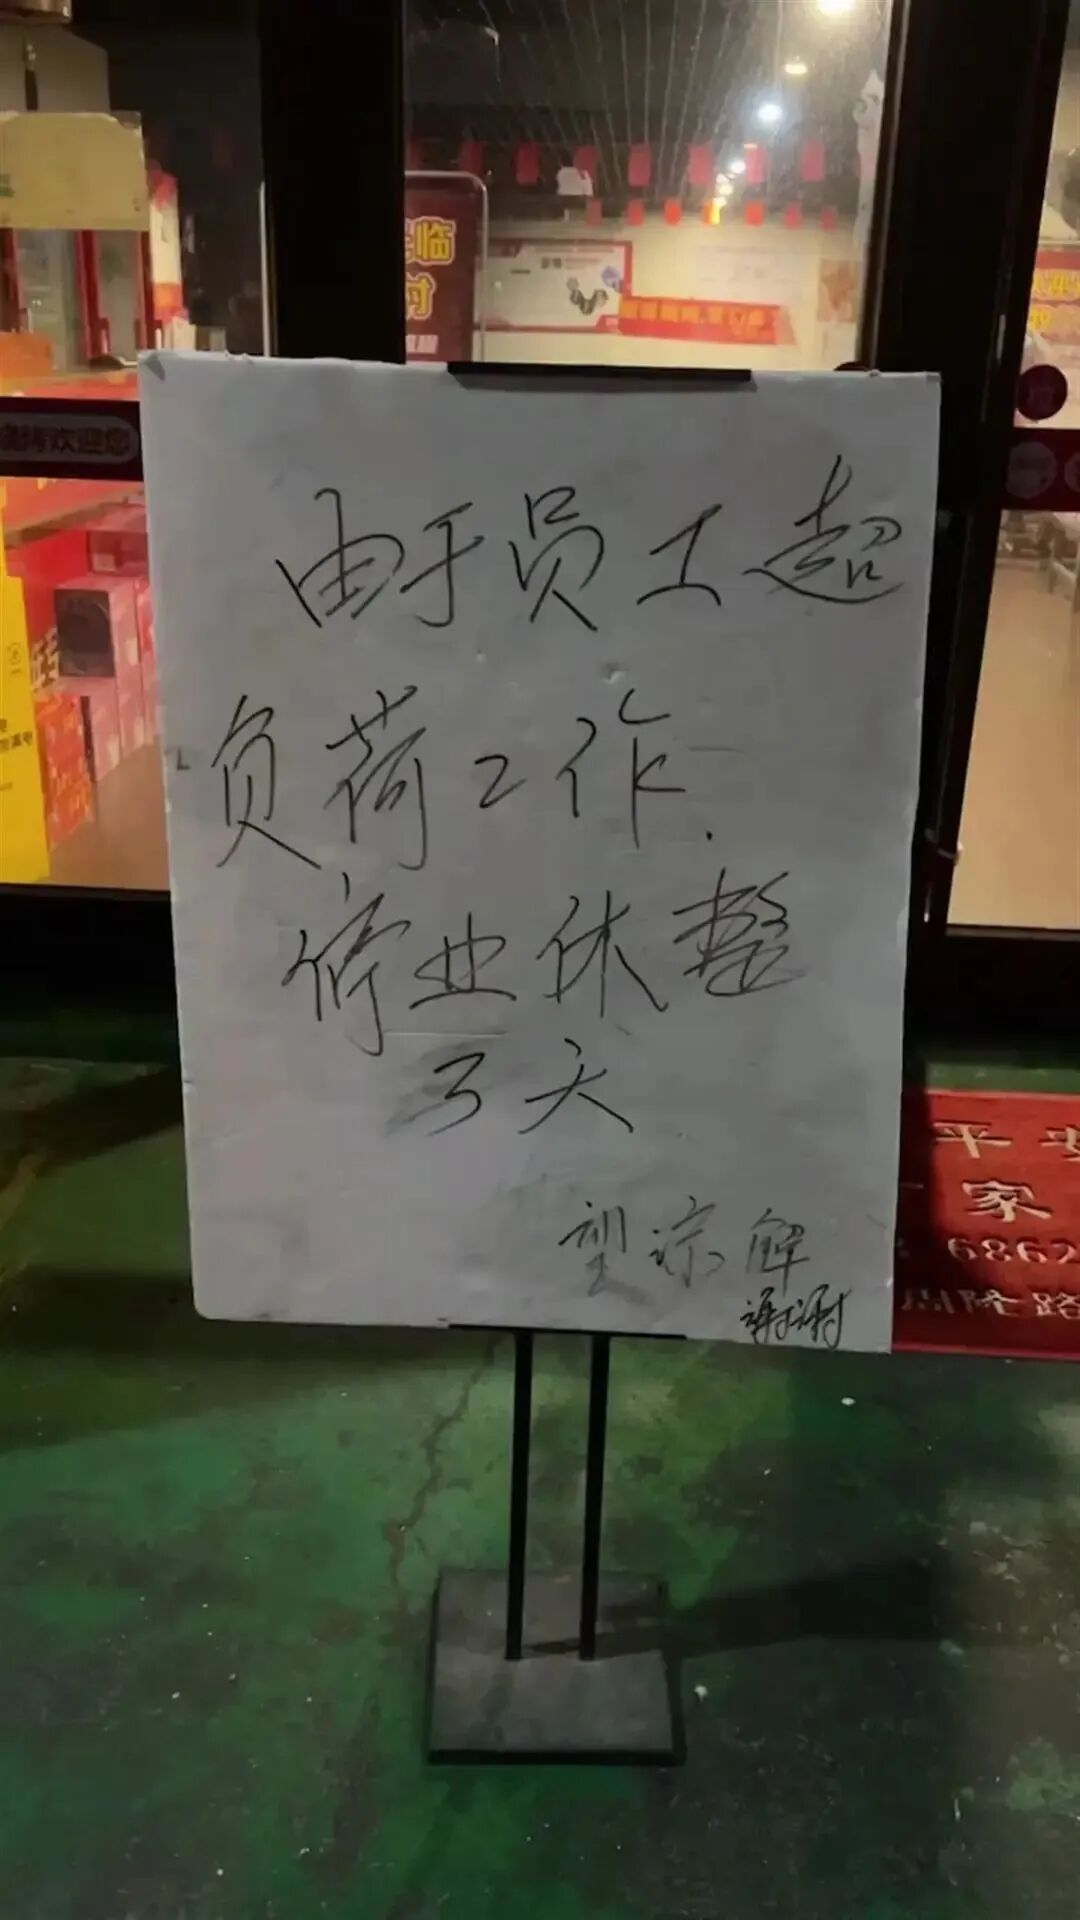 由于员工超
负荷工作.
停业休整
3天
望谅解
谢谢
临
欢迎您
平安
家
6862
路